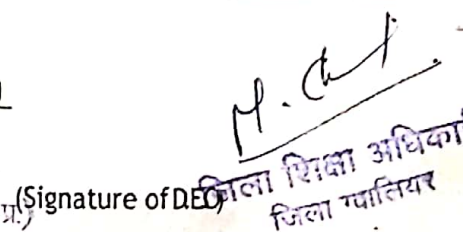 (Signature of DEO)
जिला शिक्षा अधिकारी
जिला ग्वालियर